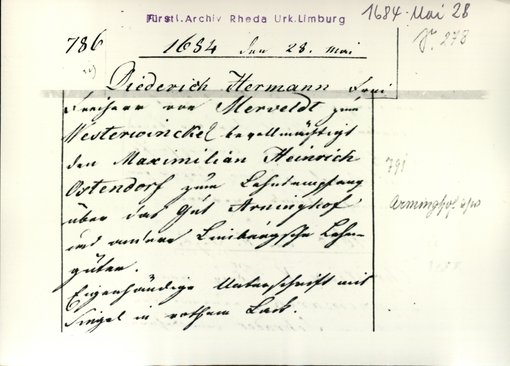 Fürstl. Archiv Rheda Urk. Limburg
1684 Mai 28
786
1684 den 28. Mai
Diederich Hermann Frei
Freiherr von Merveldt zum
Westerwinckel bevollmächtigt
den Maximilian Heinrich
Ostendorf zum Lehnempfang
über das Gut Arminghof
und andere Limburgsche Lehn-
güter.
Eigenhändige Unterschrift mit
Siegel in rothem Lack.